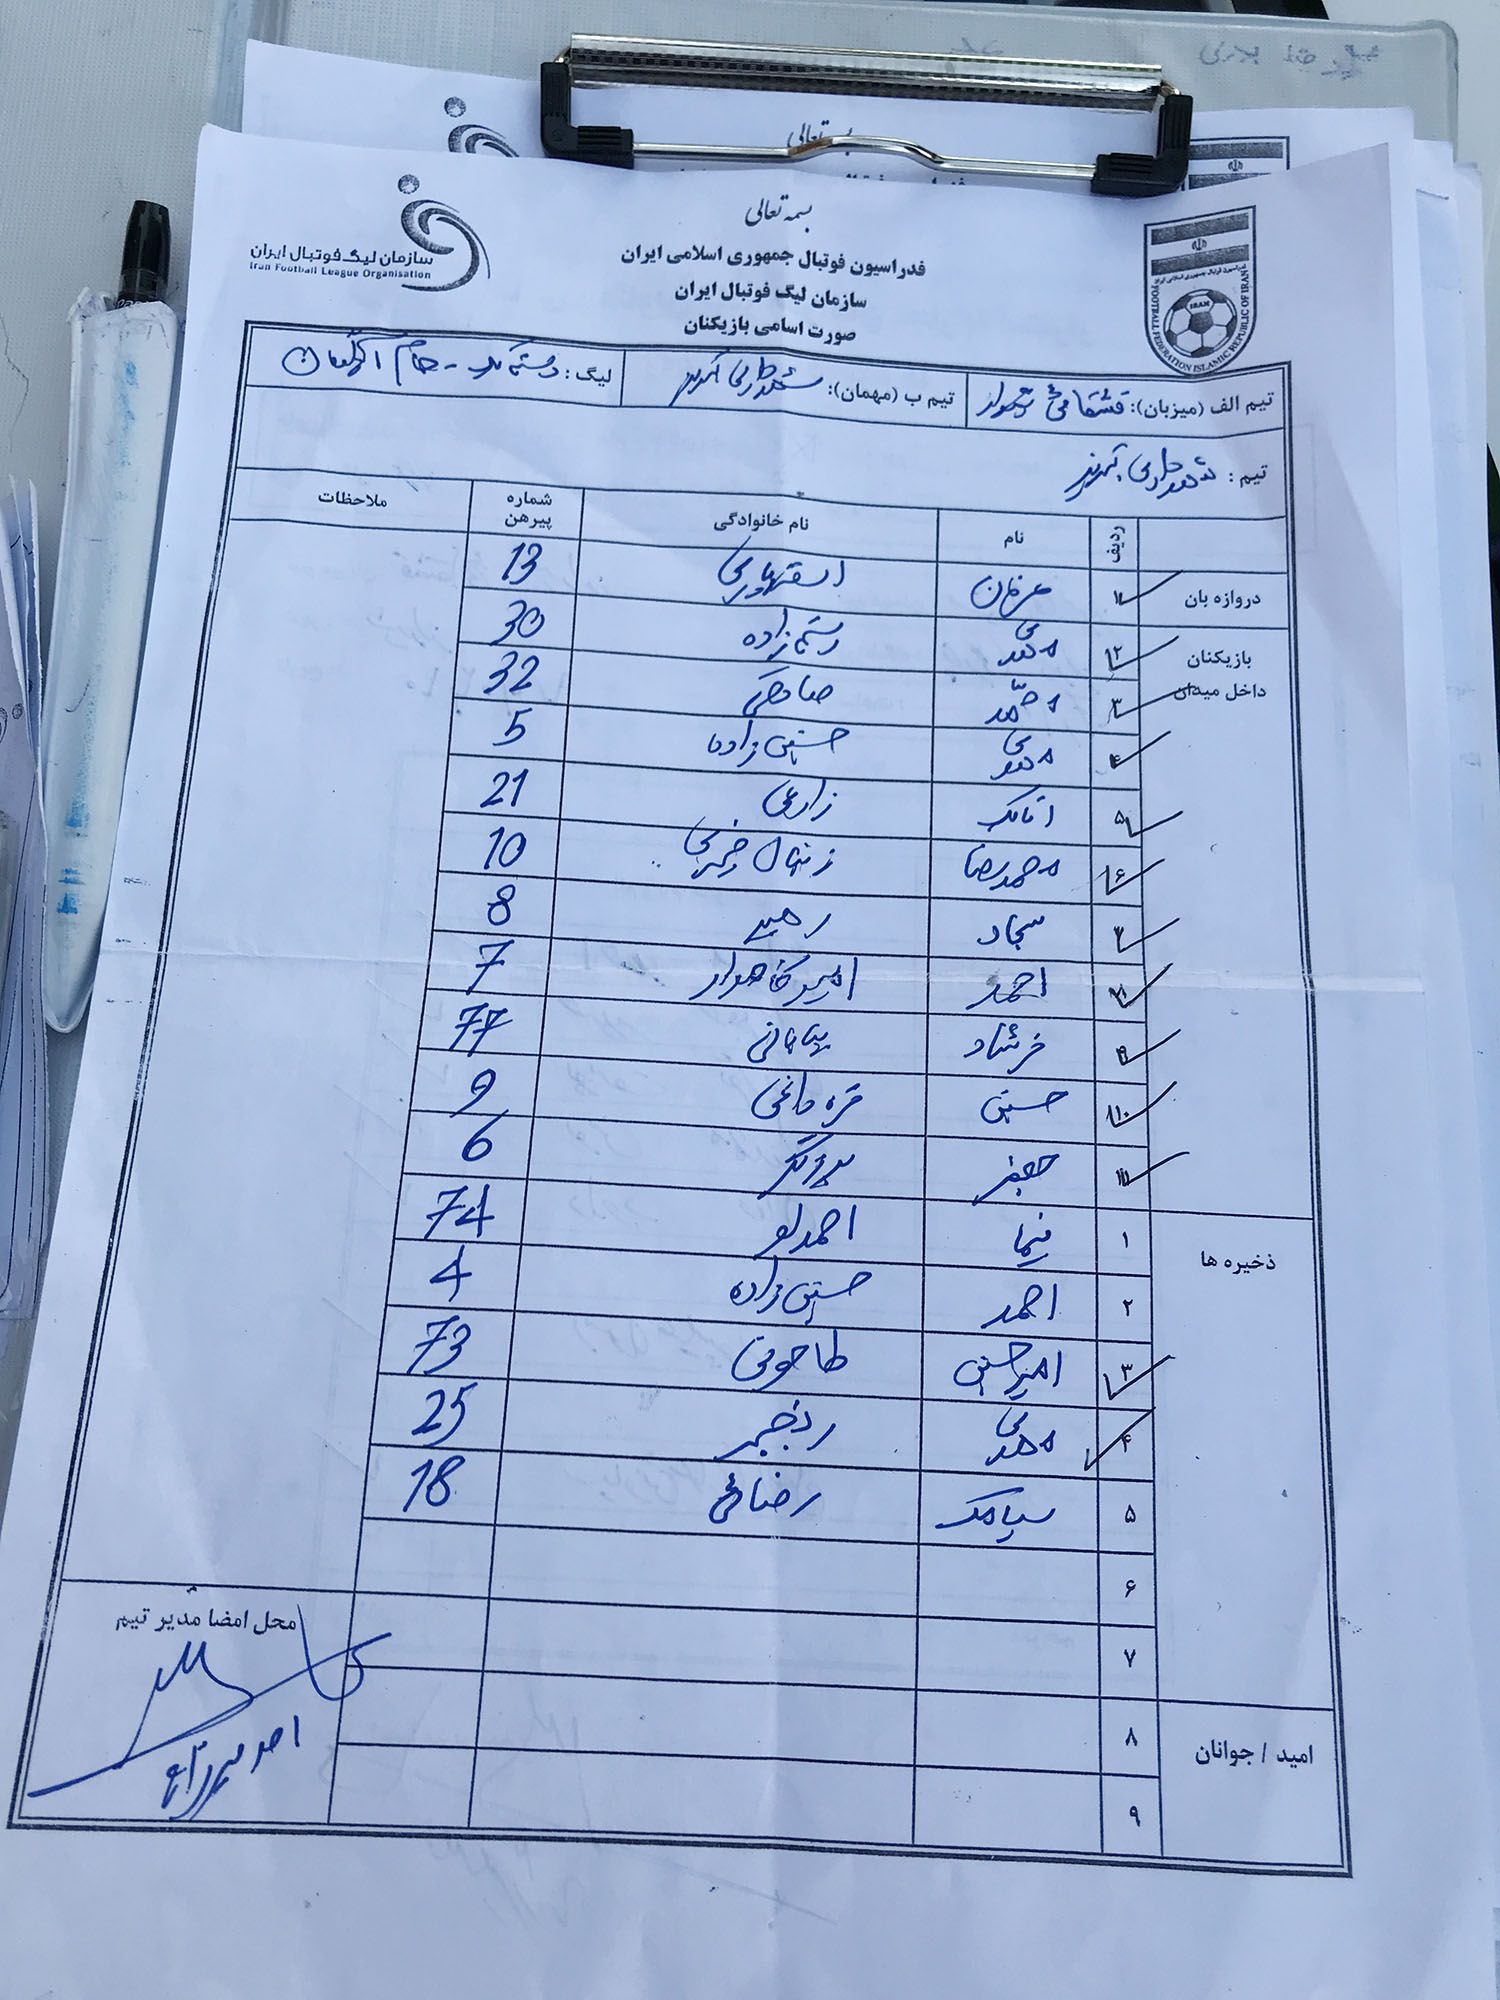 بسمه تعالی
فدراسیون فوتبال جمهوری اسلامی ایران
سازمان لیگ فوتبال ایران
صورت اسامی بازیکنان
سازمان لیگ فوتبال ایران
Iran Football League Organisation
IRAN
FOOTBALL FEDERATION ISLAMIC REPUBLIC OF IRAN
تیم الف (میزبان): قشقایی شیراز
تیم ب (مهمان): شهرداری تبریز
لیگ: دسته یک -
تیم: شهرداری تبریز
ردیف نام نام خانوادگی شماره پیرهن ملاحظات
دروازه بان ۱ عرفان 13
بازیکنان داخل میدان ۲ مهدی رستم زاده 30
۳ محمد صادقی 32
۴ مهدی حسین زاده 5
۵ اتابک زارعی 21
۶ محمدرضا 10
۷ سجاد رهبر 8
۸ احمد امیرکامدار 7
۹ فرشاد 77
۱۰ حسین قره داغی 9
۱۱ جعفر 6
ذخیره ها ۱ نیما احمدلو 74
۲ احمد حسین زاده 4
۳ امیرحسین طاحونی 73
۴ مهدی رنجبر 25
۵ سیامک رضاعی 18
۶
۷
امید / جوانان ۸
۹
محل امضا مدیر تیم